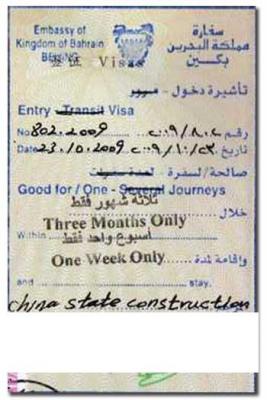 Embassy of سفارة
Kingdom of Bahrain مملكة البحرين
BEIJING 签证 Visas بكين
تأشيرة دخول - مرور
Entry - Transit Visa
No 802.2009 رقم ٨٠٢.٢٠٠٩
Date 23.10.2009 تاريخ ٢٣/١٠/٢٠٠٩
صالحة/لسفرة - لعدة سفرات
Good for / One - Several Journeys
ثلاثة شهور فقط
خلال
Three Months Only
Within أسبوع واحد فقط
One Week Only وإقامة لمدة
and stay.
china state construction